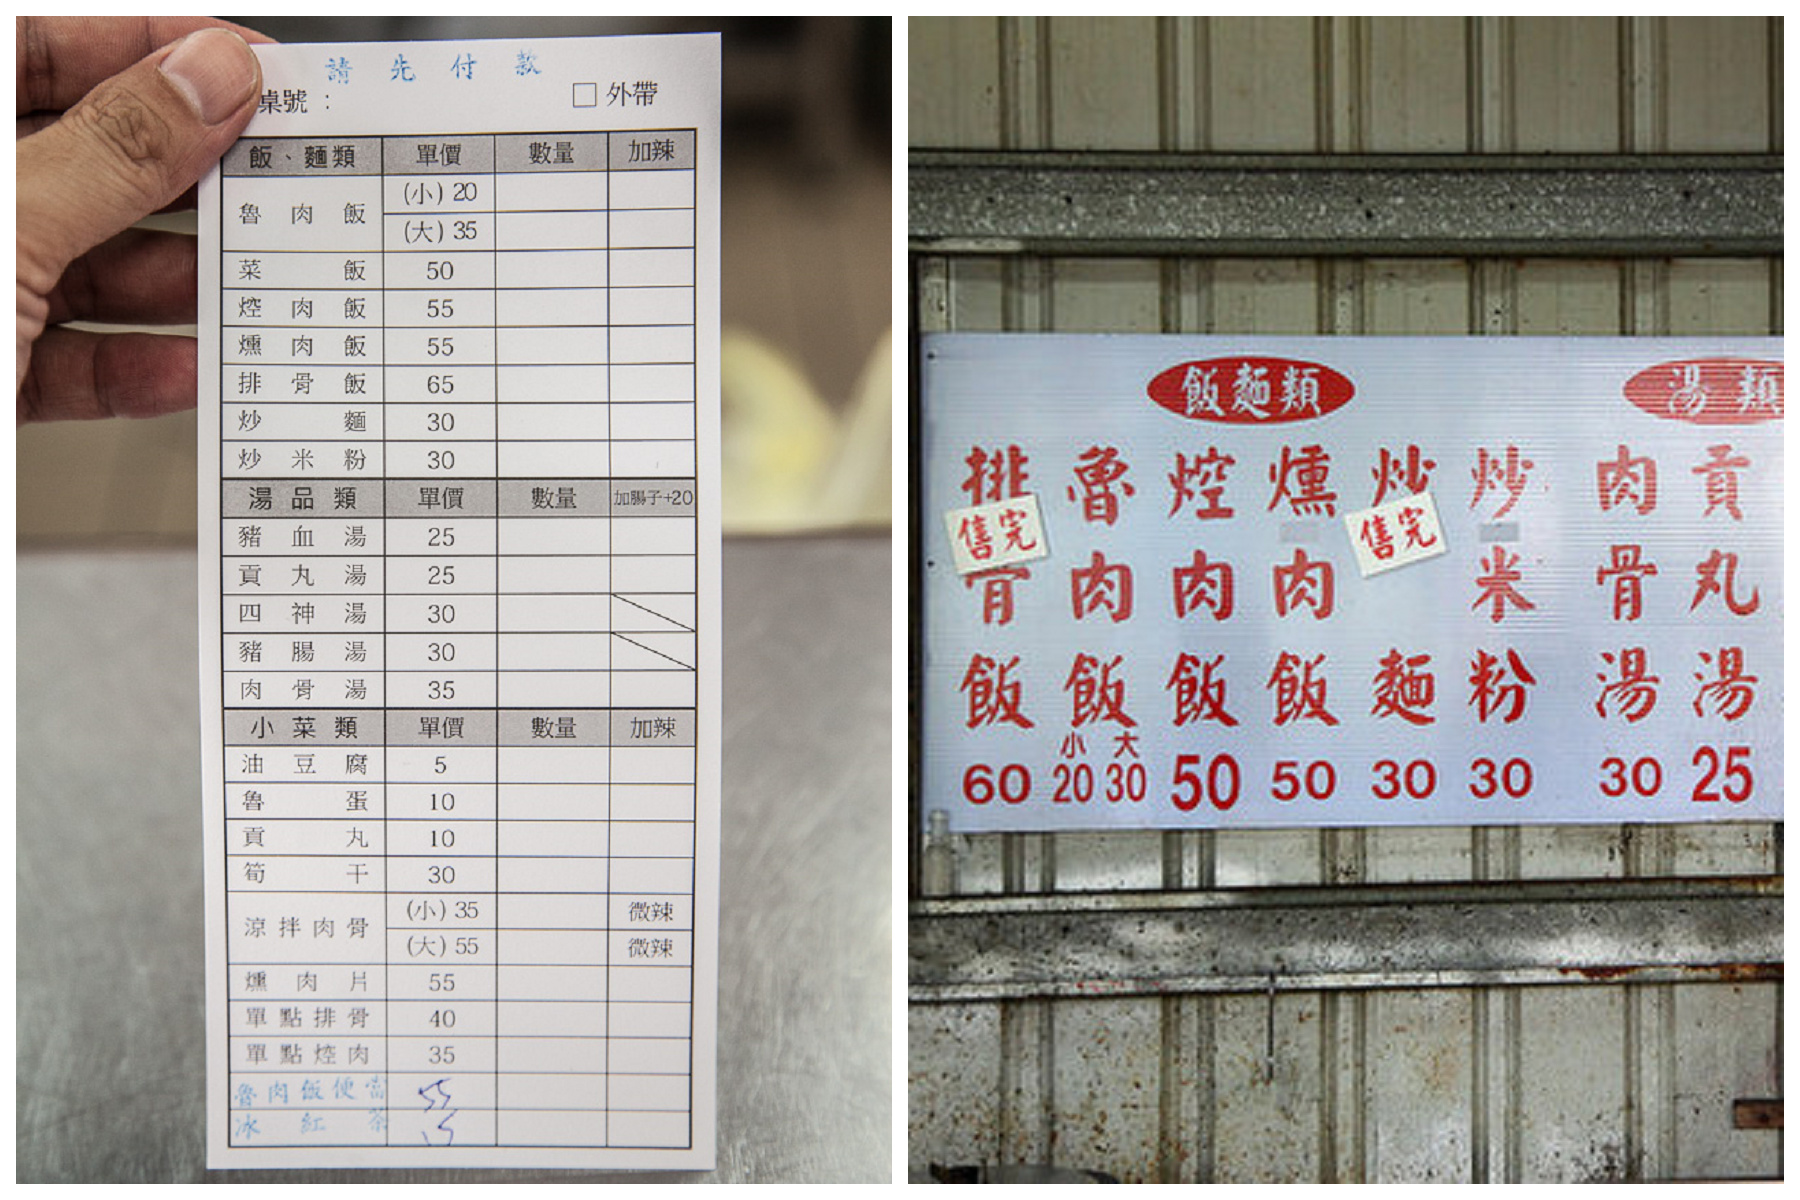 請先付款
桌號：
□外帶
飯、麵類 單價 數量 加辣
魯肉飯 (小) 20
(大) 35
菜飯 50
焢肉飯 55
燻肉飯 55
排骨飯 65
炒麵 30
炒米粉 30
湯品類 單價 數量 加腸子+20
豬血湯 25
貢丸湯 25
四神湯 30
豬腸湯 30
肉骨湯 35
小菜類 單價 數量 加辣
油豆腐 5
魯蛋 10
貢丸 10
筍干 30
涼拌肉骨 (小) 35 微辣
(大) 55 微辣
燻肉片 55
單點排骨 40
單點焢肉 35
魯肉飯便當 55
冰紅茶 15
飯麵類
排骨飯 60
售完
魯肉飯 小 20 大 30
焢肉飯 50
燻肉飯 50
炒麵 30
售完
炒米粉 30
湯類
肉骨湯 30
貢丸湯 25